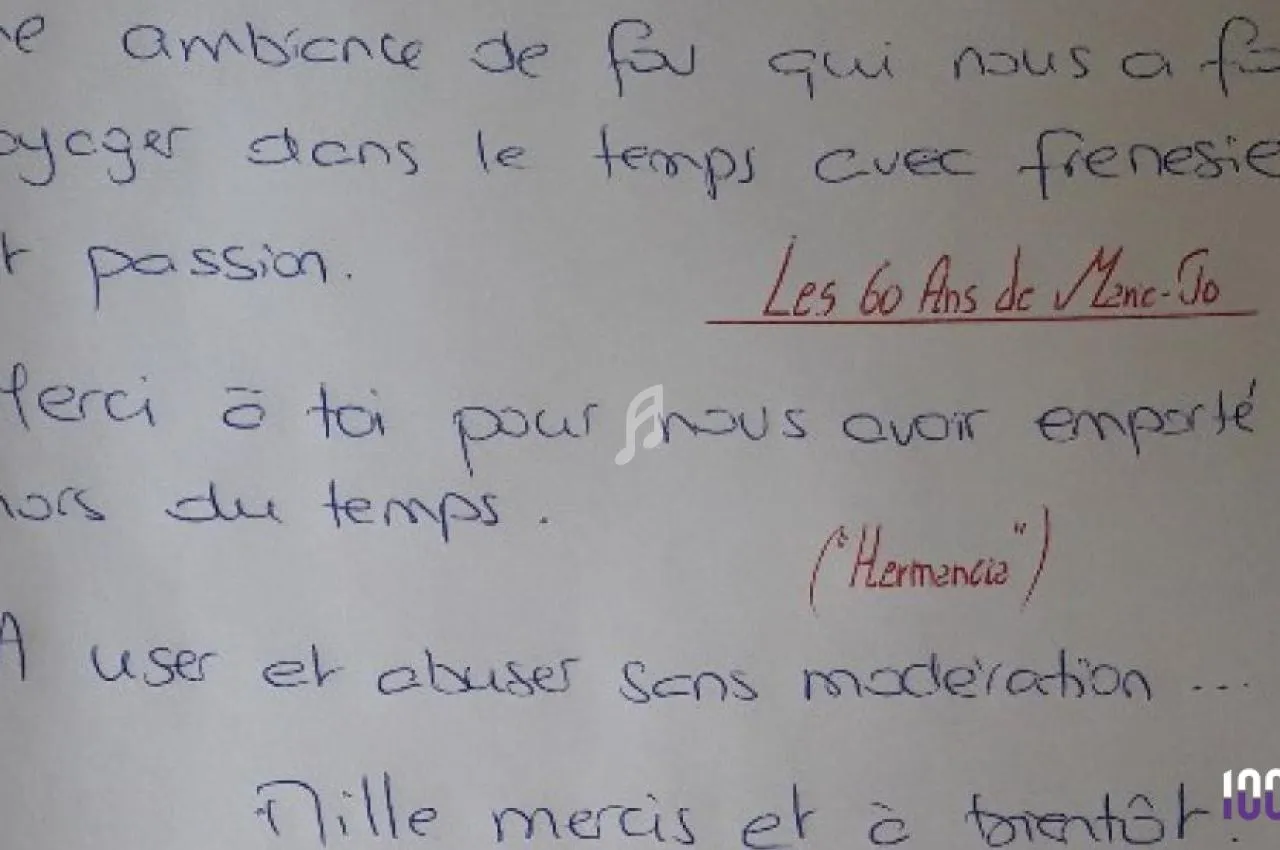 ne ambiance de fou qui nous a fa
oyager dans le temps avec frenesie
t passion.
Les 60 Ans de Marie-Jo
Merci à toi pour nous avoir emporté
hors du temps.
("Hermancia")
A user et abuser sans modération ...
Mille mercis et à bientôt.
100